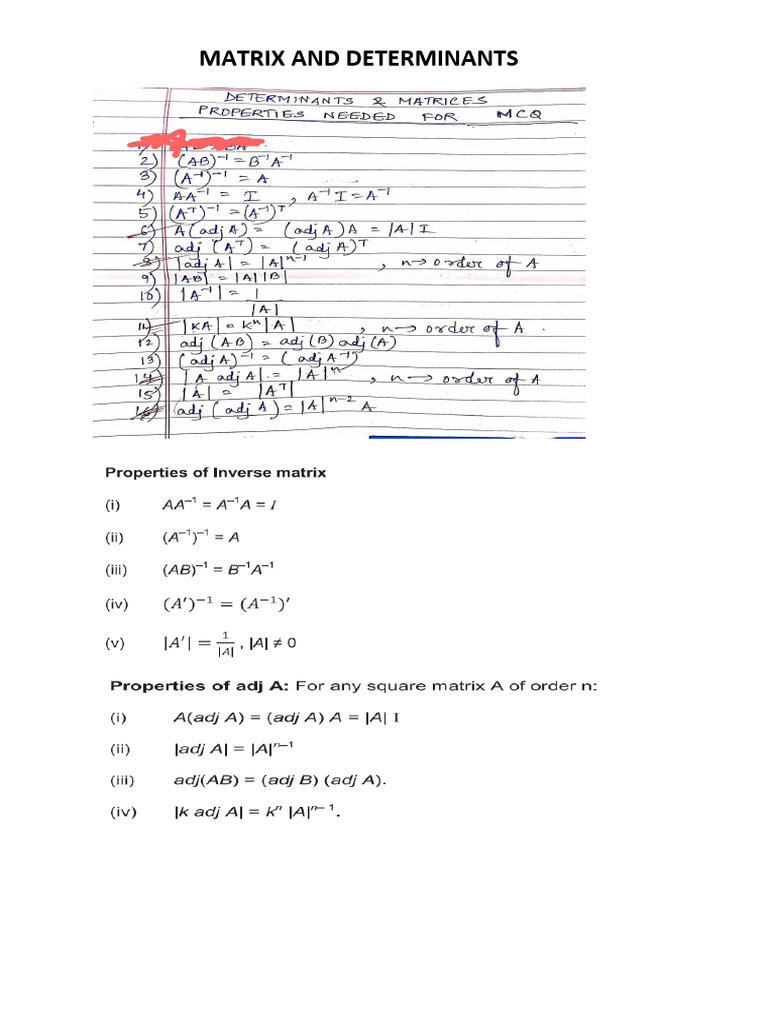 MATRIX AND DETERMINANTS
DETERMINANTS & MATRICES
PROPERTIES NEEDED FOR MCQ
1)
2) (AB)⁻¹ = B⁻¹A⁻¹
3) (A⁻¹)⁻¹ = A
4) AA⁻¹ = I , A⁻¹ I = A⁻¹
5) (Aᵀ)⁻¹ = (A⁻¹)ᵀ
6) A(adj A) = (adj A) A = |A| I
7) adj (Aᵀ) = (adj A)ᵀ
8) |adj A| = |A|ⁿ⁻¹ , n → order of A
9) |AB| = |A| |B|
10) |A⁻¹| = 1/|A|
11) |KA| = Kⁿ |A| , n → order of A .
12) adj (AB) = adj (B) adj (A)
13) (adj A)⁻¹ = (adj A⁻¹)
14) |A adj A| = |A|ⁿ , n → order of A
15) |A| = |Aᵀ|
16) adj (adj A) = |A|ⁿ⁻² A
Properties of Inverse matrix
(i) AA⁻¹ = A⁻¹A = I
(ii) (A⁻¹)⁻¹ = A
(iii) (AB)⁻¹ = B⁻¹A⁻¹
(iv) (A′)⁻¹ = (A⁻¹)′
(v) |A′| = 1/|A| , |A| ≠ 0
Properties of adj A: For any square matrix A of order n:
(i) A(adj A) = (adj A) A = |A| I
(ii) |adj A| = |A|ⁿ⁻¹
(iii) adj(AB) = (adj B) (adj A).
(iv) |k adj A| = kⁿ |A|ⁿ⁻¹.